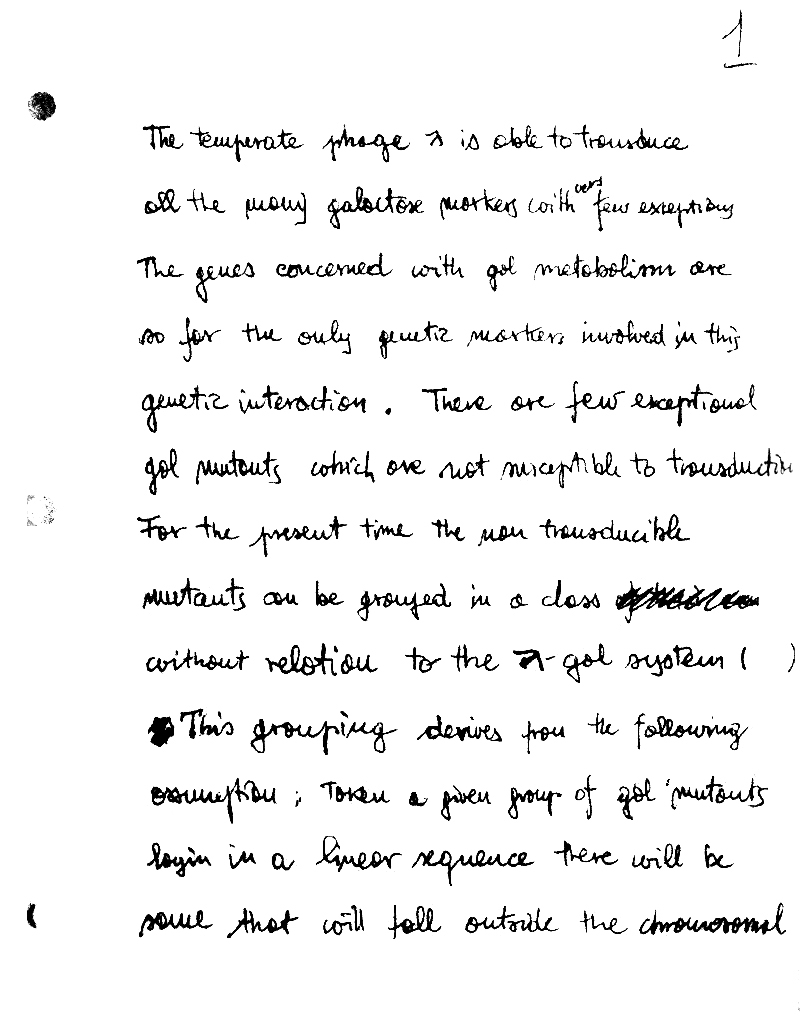 1
The temperate phage λ is able to transduce
all the many galactose markers with very few exceptions
The genes concerned with gal metabolism are
so far the only genetic markers involved in this
genetic interaction. There are few exceptional
gal mutants which are not susceptible to transduction
For the present time the non transducible
mutants can be grouped in a class
without relation to the λ-gal system ( )
This grouping derives from the following
assumption; Taken a given group of gal mutants
laying in a linear sequence there will be
some that will fall outside the chromosomal